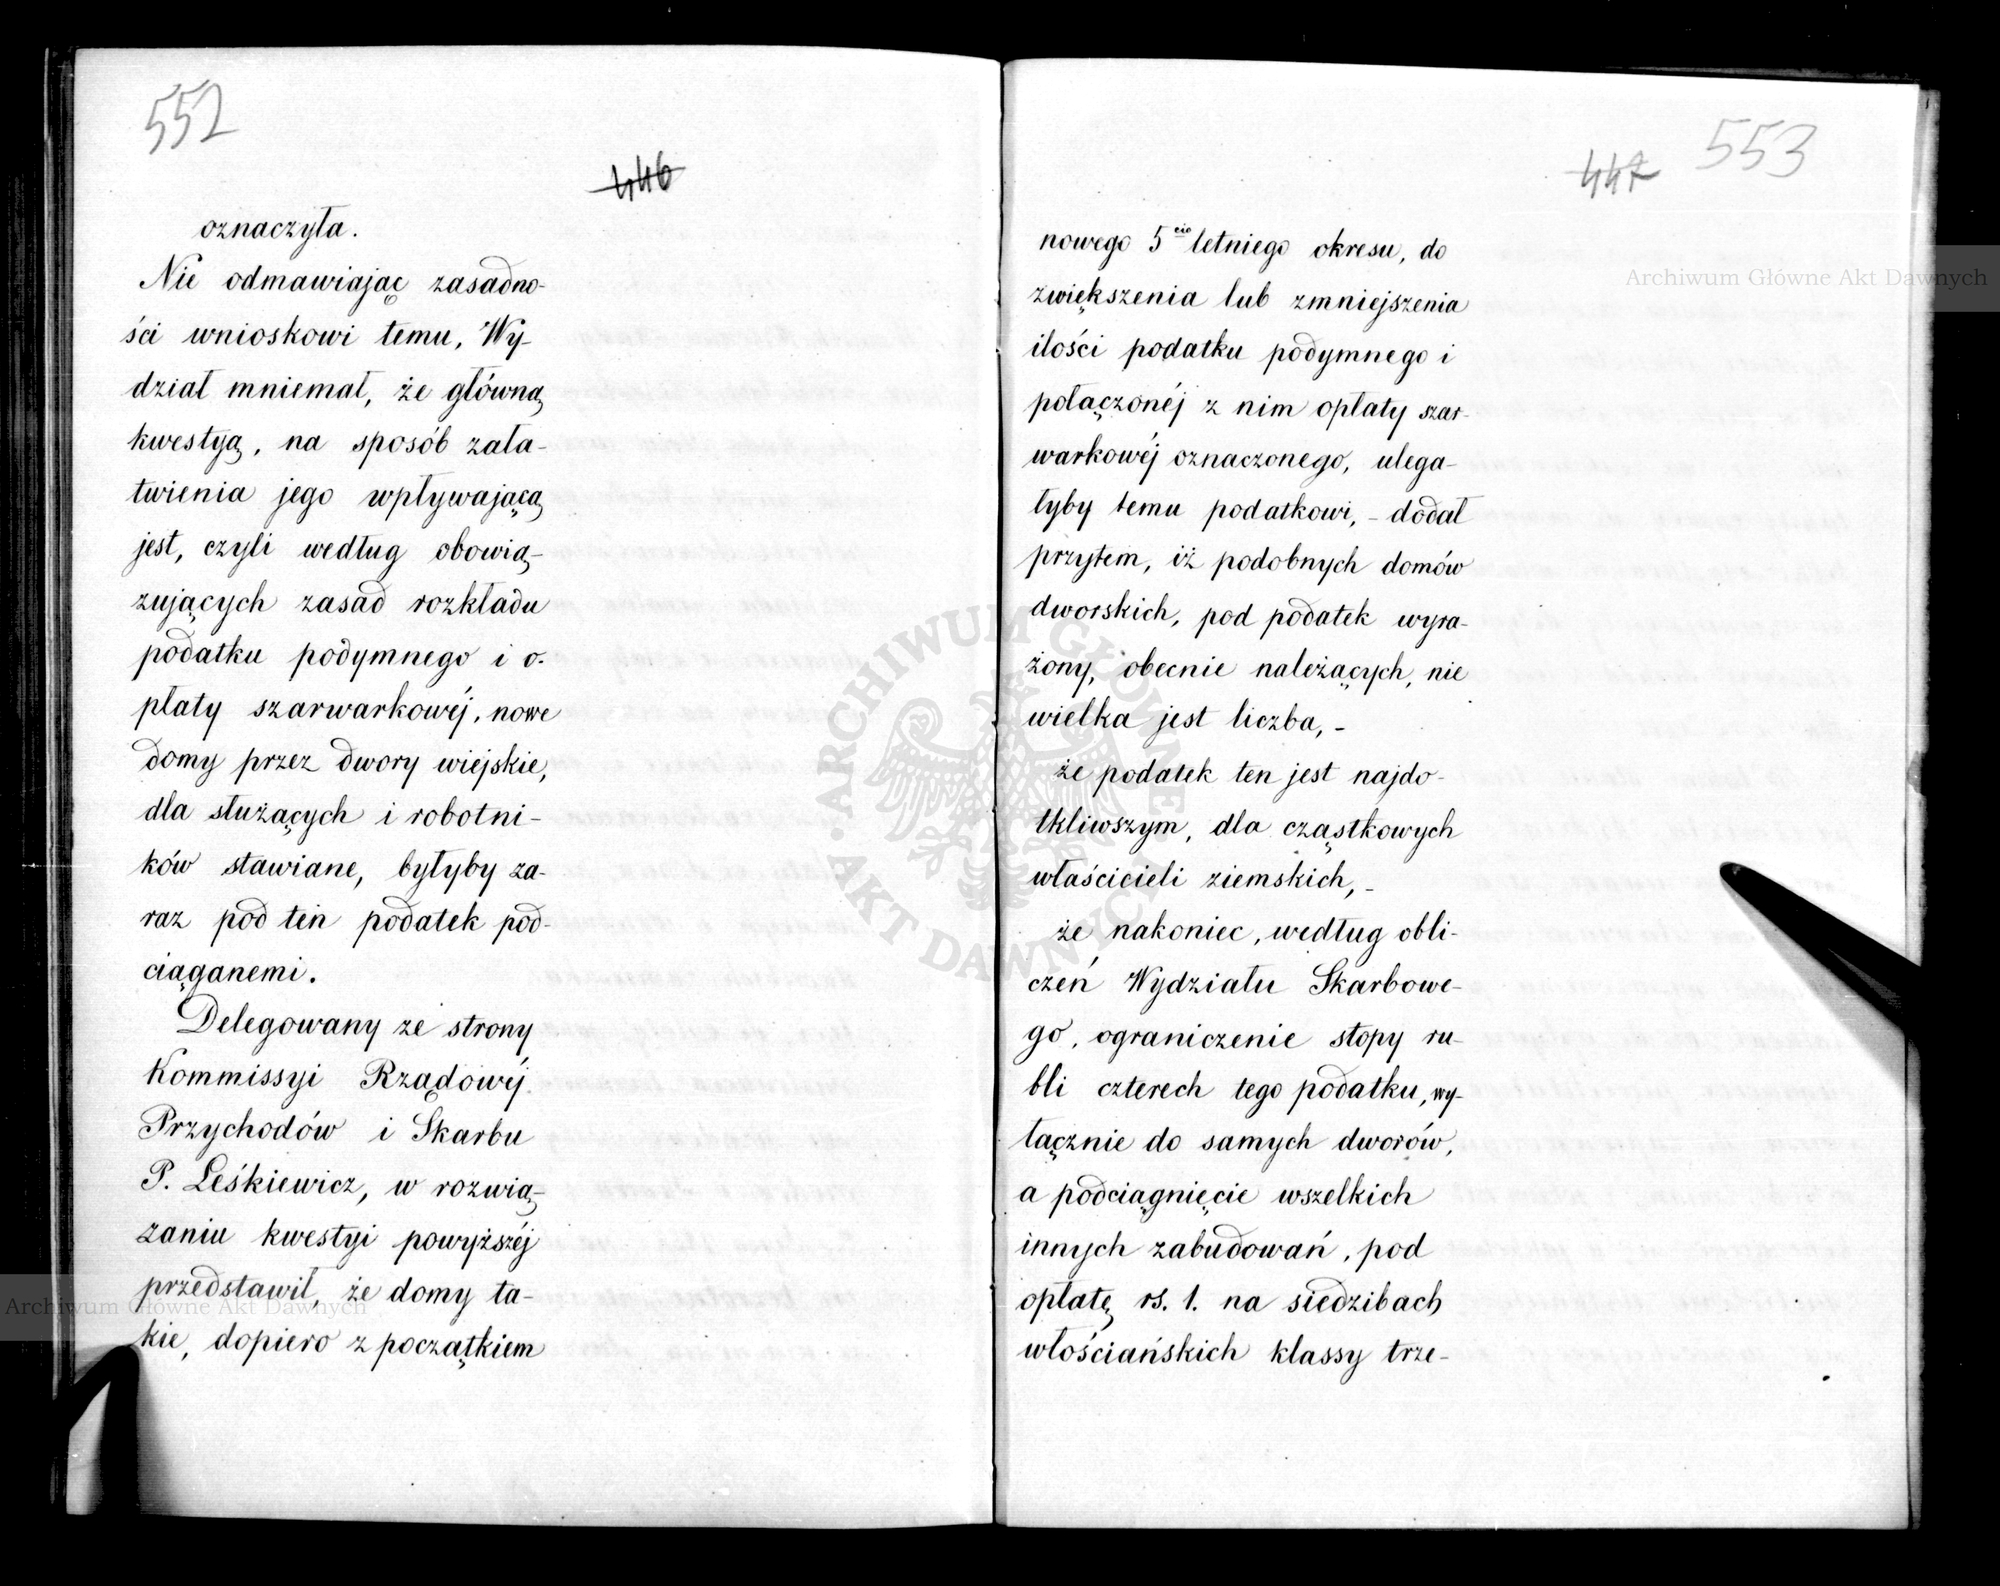 552
446
oznaczyła.
Nie odmawiając zasadno-
ści wnioskowi temu, Wy-
dział mniemał, że główną
kwestyą, na sposób zała-
twienia jego wpływającą
jest, czyli według obowią-
zujących zasad rozkładu
podatku podymnego i o-
płaty szarwarkowéj, nowe
domy przez dwory wiejskie,
dla służących i robotni-
ków stawiane, byłyby za-
raz pod ten podatek pod-
ciąganemi.
Delegowany ze strony
Kommissyi Rządowéj
Przychodów i Skarbu
P. Leśkiewicz, w rozwią-
zaniu kwestyi powyższéj
przedstawił, że domy ta-
kie, dopiero z początkiem
447
553
nowego 5cio letniego okresu, do
zwiększenia lub zmniejszenia
ilości podatku podymnego i
połączonéj z nim opłaty szar-
warkowéj oznaczonego, ulega-
łyby temu podatkowi, - dodał
przytem, iż podobnych domów
dworskich, pod podatek wyra-
żony, obecnie należących, nie
wielka jest liczba, -
że podatek ten jest najdo-
tkliwszym, dla cząstkowych
właścicieli ziemskich, -
że nakoniec, według obli-
czeń Wydziału Skarbowe-
go, ograniczenie stopy ru-
bli czterech tego podatku, wy-
łącznie do samych dworów,
a podciągnięcie wszelkich
innych zabudowań, pod
opłatę rs. 1. na siedzibach
włościańskich klassy trze-
Archiwum Główne Akt Dawnych
Archiwum Główne Akt Dawnych
ARCHIWUM GŁÓWNE AKT DAWNYCH